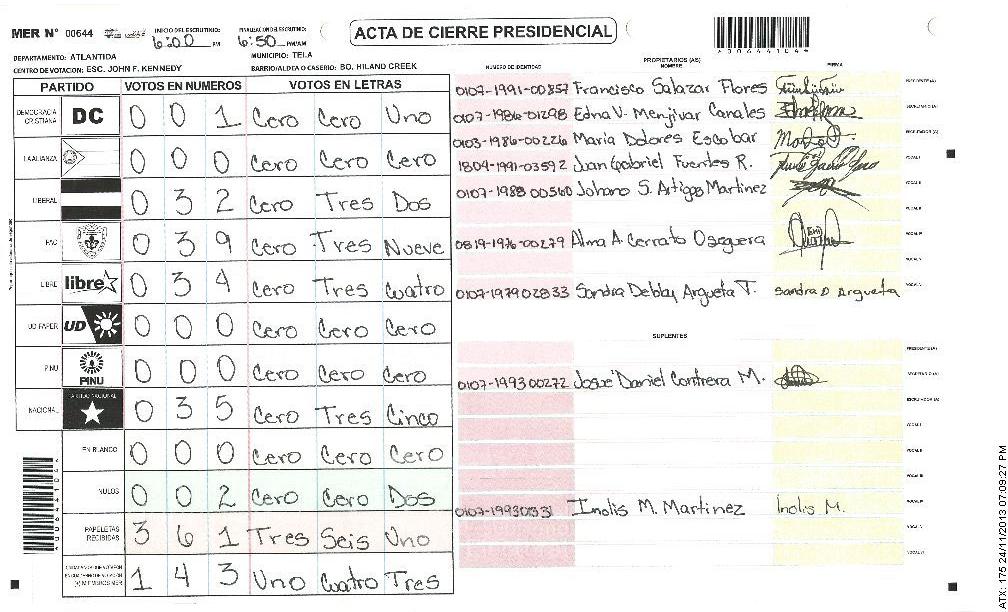 MER N° 00644
INICIO DEL ESCRUTINIO: 6:00 PM
FINALIZACION DEL ESCRUTINIO: 6:50 PM/AM
ACTA DE CIERRE PRESIDENCIAL
DEPARTAMENTO: ATLANTIDA
MUNICIPIO: TELA
CENTRO DE VOTACION: ESC. JOHN F. KENNEDY
BARRIO/ALDEA O CASERIO: BO. HILAND CREEK
PARTIDO VOTOS EN NUMEROS VOTOS EN LETRAS
DEMOCRACIA CRISTIANA DC 0 0 1 Cero Cero Uno
F.ALIANZA 0 0 0 Cero Cero Cero
LIBERAL 0 3 2 Cero Tres Dos
PAC 0 3 9 Cero Tres Nueve
LIBRE libre 0 3 4 Cero Tres Cuatro
UD FAPER UD 0 0 0 Cero Cero Cero
PINU PINU 0 0 0 Cero Cero Cero
NACIONAL PARTIDO NACIONAL 0 3 5 Cero Tres Cinco
EN BLANCO 0 0 0 Cero Cero Cero
NULOS 0 0 2 Cero Cero Dos
PAPELETAS RECIBIDAS 3 6 1 Tres Seis Uno
CIUDADANOS QUE VOTARON EN CUADERNO DE VOTACION (+) MIEMBROS MER 1 4 3 Uno Cuatro Tres
PROPIETARIOS (AS)
NUMERO DE IDENTIDAD NOMBRE FIRMA
0107-1991-00857 Francisco Salazar Flores PRESIDENTE (A)
0107-1986-01298 Edna V. Menjivar Canales SECRETARIO (A)
0103-1986-00226 Maria Dolores Escobar ESCRUTADOR (A)
1804-1991-03592 Juan Gabriel Fuentes R. VOCAL I
0107-1988 00560 Johana S. Artiga Martinez VOCAL II
VOCAL III
0819-1976-00279 Alma A Cerrato Oseguera VOCAL IV
VOCAL V
0107-1979 02833 Sandra Debby Argueta T. Sandra D Argueta
SUPLENTES
PRESIDENTE (A)
0107-1993 00272 Josue Daniel Contrera M. SECRETARIO (A)
ESCRUTADOR (A)
VOCAL I
VOCAL II
VOCAL III
0107-1993 Inolis M. Martinez Inolis M. VOCAL IV
VOCAL V
VOCAL VI
ATX: 175 24/11/2013 07:09:27 PM